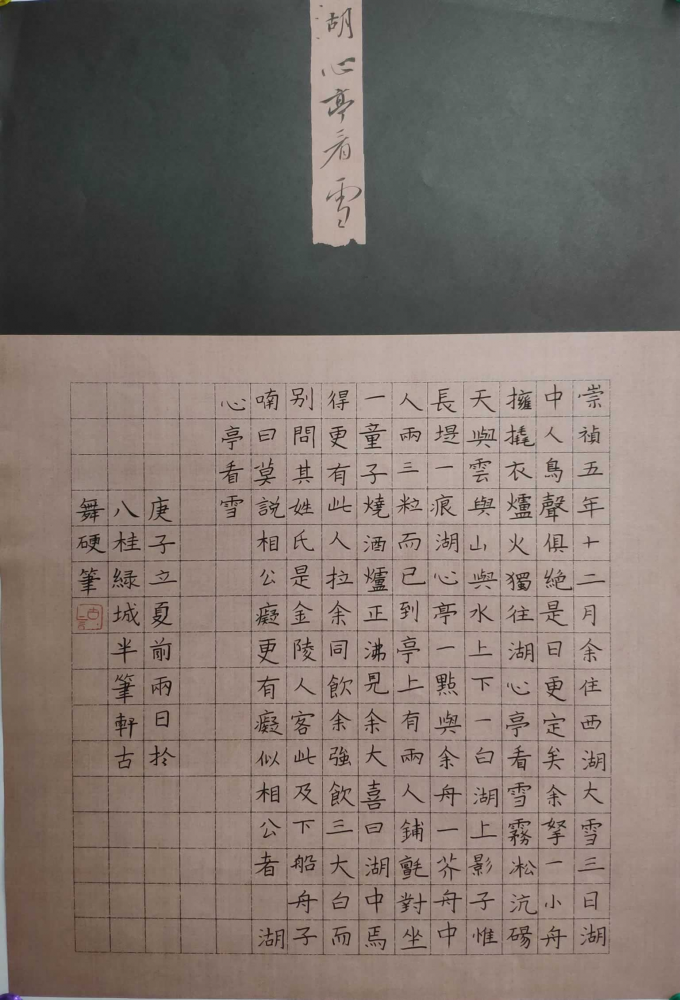 湖心亭看雪
崇禎五年十二月余住西湖大雪三日湖
中人鳥聲俱絕是日更定矣余拏一小舟
擁撬衣爐火獨往湖心亭看雪霧凇沆碭
天與雲與山與水上下一白湖上影子惟
長堤一痕湖心亭一點與余舟一芥舟中
人兩三粒而已到亭上有兩人鋪氈對坐
一童子燒酒爐正沸見余大喜曰湖中焉
得更有此人拉余同飲余強飲三大白而
别問其姓氏是金陵人客此及下船舟子
喃曰莫說相公癡更有癡似相公者 湖
心亭看雪
庚子立夏前兩日於
八桂緑城半筆軒古
舞硬筆